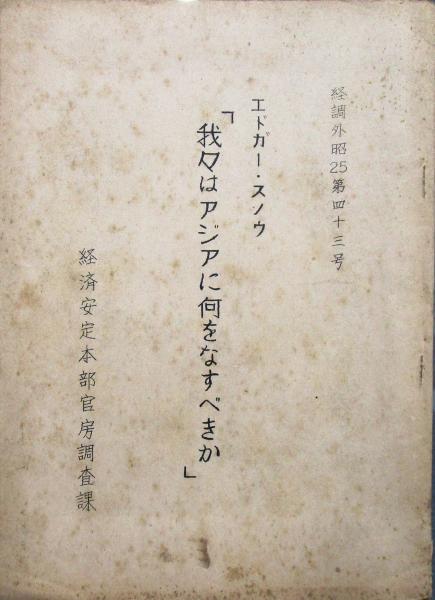 経調外昭25第四十三号
エドガー・スノウ
「我々はアジアに何をなすべきか」
経済安定本部官房調査課